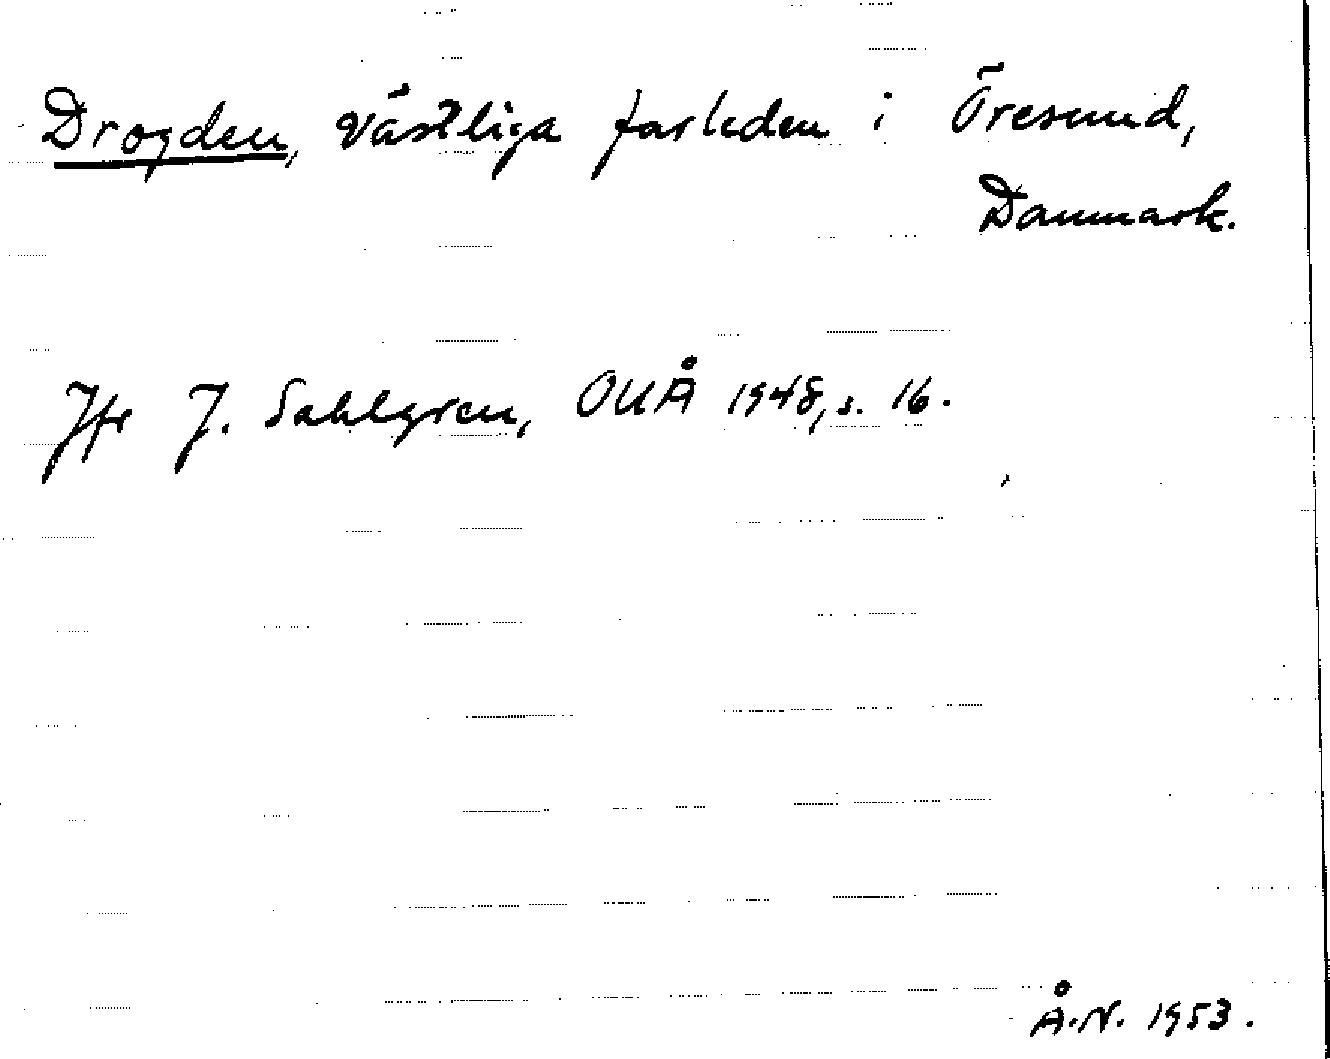 Drogden, västliga farleden i Öresund,
Danmark.
Jfr J. Sahlgren, OUÅ 1948, s. 16.
Å.N. 1953.